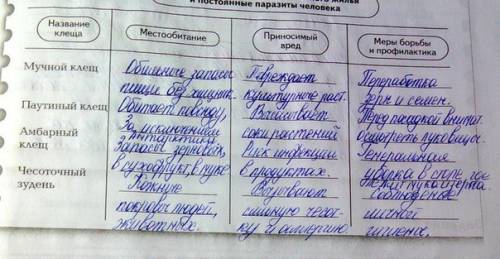 и постоянные паразиты человека
Название клеща
Местообитание
Приносимый вред
Меры борьбы и профилактика
Мучной клещ
Обильные запасы
пищи без
Повреждает
культурное раст.
Переработка
зерн и семен.
Паутинный клещ
Обитает повсюду,
За исключением
Антарктики
Высасывает
соки растений
Перед посадкой внимат.
осмотреть луковицы.
Амбарный клещ
Запасы зерновых,
в сухофрукт, в муке
Риск инфекции
в продуктах.
Генеральная
уборка в
Чесоточный зудень
Кожные
покровы людей,
животных.
Вызывают
сильную чесот-
ку и аллергию
Соблюдение
личной
гигиены.